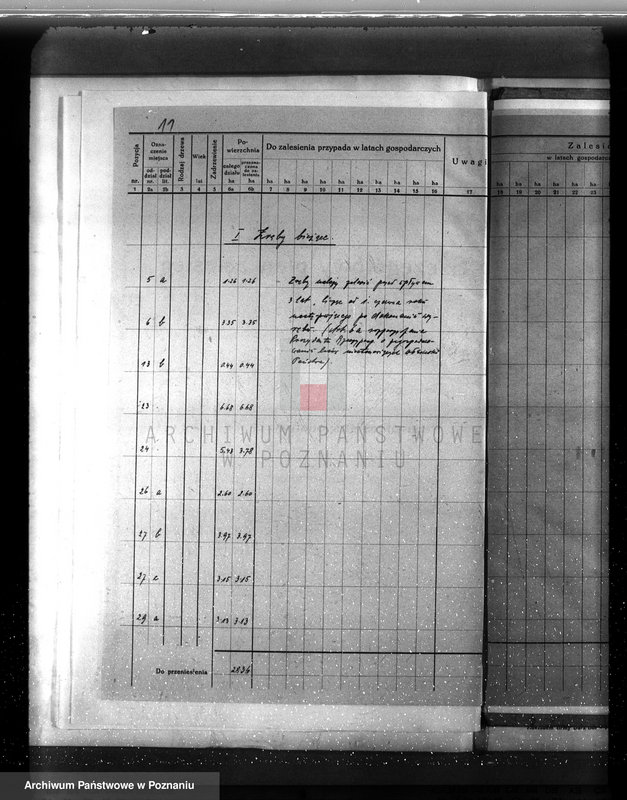 11
Pozycja nr.
Oznaczenie miejsca
oddział nr.
pododdz. lit.
Rodzaj drzewa
Wiek lat
Zadrzewienie
Powierzchnia
całego działu ha
przeznaczona do zalesienia ha
Do zalesienia przypada w latach gospodarczych
ha ha ha ha ha ha ha ha ha ha
Uwagi
Zalesia
w latach gospodarc
ha ha ha ha ha ha
1 2a 2b 3 4 5 6a 6b 7 8 9 10 11 12 13 14 15 16 17 18 19 20 21 22 23
I Zręby bieżące.
5 a 1.26 1.26
Zręby należy zalesić przed upływem
3 lat, licząc od 1. czerwca roku
następującego po dokonaniu wy-
rębu.
6 b 3.35 3.35
rozporządzenia
Prezydenta
Państwa).
13 b 0.44 0.44
23 . 6.68 6.68
24 . 5.43 3.78
26 a 2.60 2.60
27 b 3.97 3.97
27 c 3.15 3.15
29 a 3.13 3.13
Do przeniesienia
ARCHIWUM PAŃSTWOWE
W POZNANIU
Archiwum Państwowe w Poznaniu